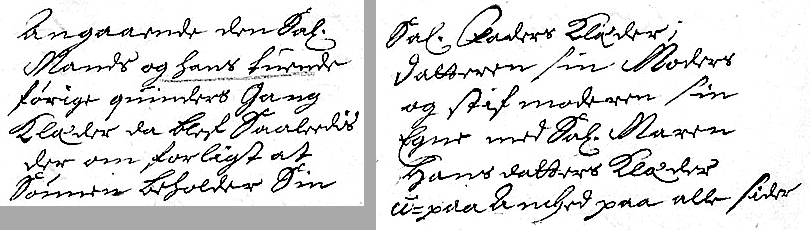 Angaaende den Sal.
Mands og hans tuende
forige quinders Gang
Klæder da blef Saaledis
der om forligt at
Sønnen beholder Sin
Sal. Faders Klæder;
Datteren sin Moders
og stif moderen sin
Egne med Sal. Maren
Hansdatters Klæder
u=paa Anched paa alle sider